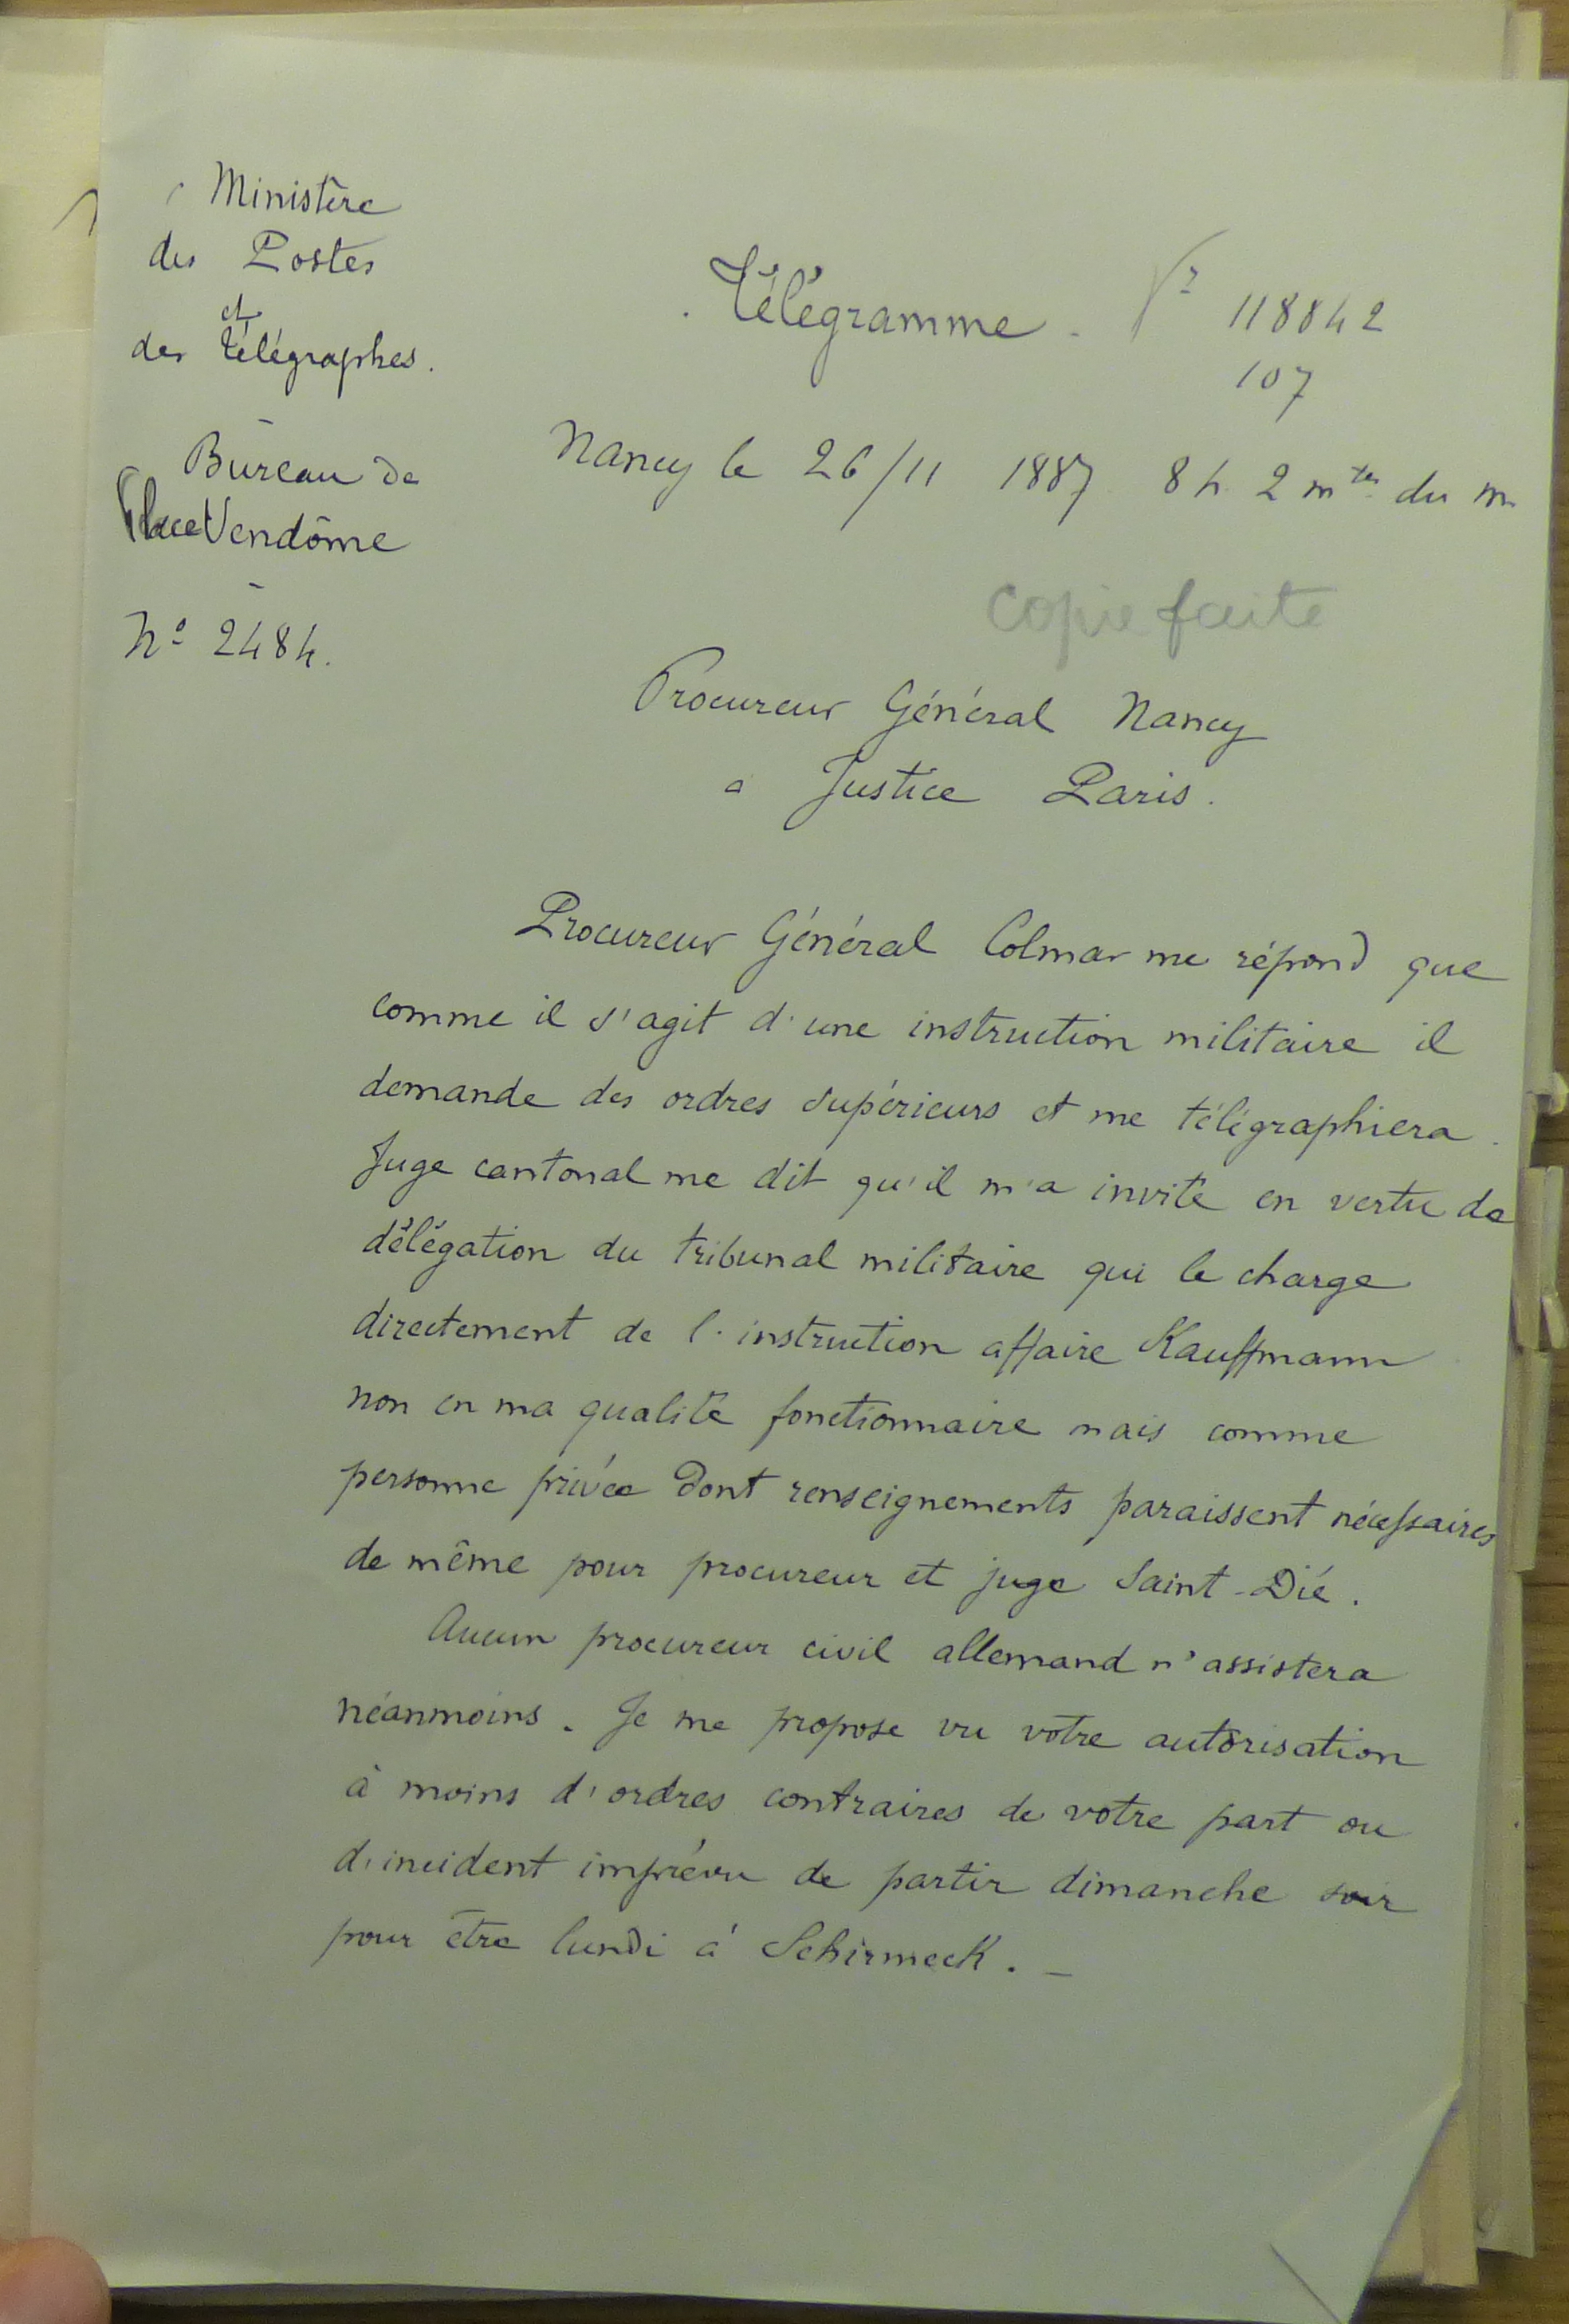 Ministère
des Postes
et
des télégraphes.
Bureau de
Place Vendôme
N° 2484.
Télégramme.
118842
107
Nancy le 26/11 1887 8 h. 2 mtes du m.
copie faite
Procureur Général Nancy
a Justice Paris.
Procureur Général Colmar me répond que
comme il s'agit d'une instruction militaire il
demande des ordres supérieurs et me télégraphiera.
Juge cantonal me dit qu'il m'a invité en vertu de
délégation du tribunal militaire qui le charge
directement de l'instruction affaire Kauffmann
non en ma qualité fonctionnaire mais comme
personne privée dont renseignements paraissent nécessaires
de même pour procureur et juge Saint-Dié.
Aucun procureur civil allemand n'assistera
néanmoins. Je me propose vu votre autorisation
à moins d'ordres contraires de votre part ou
d'incident imprévu de partir dimanche soir
pour être lundi à Schirmeck. –